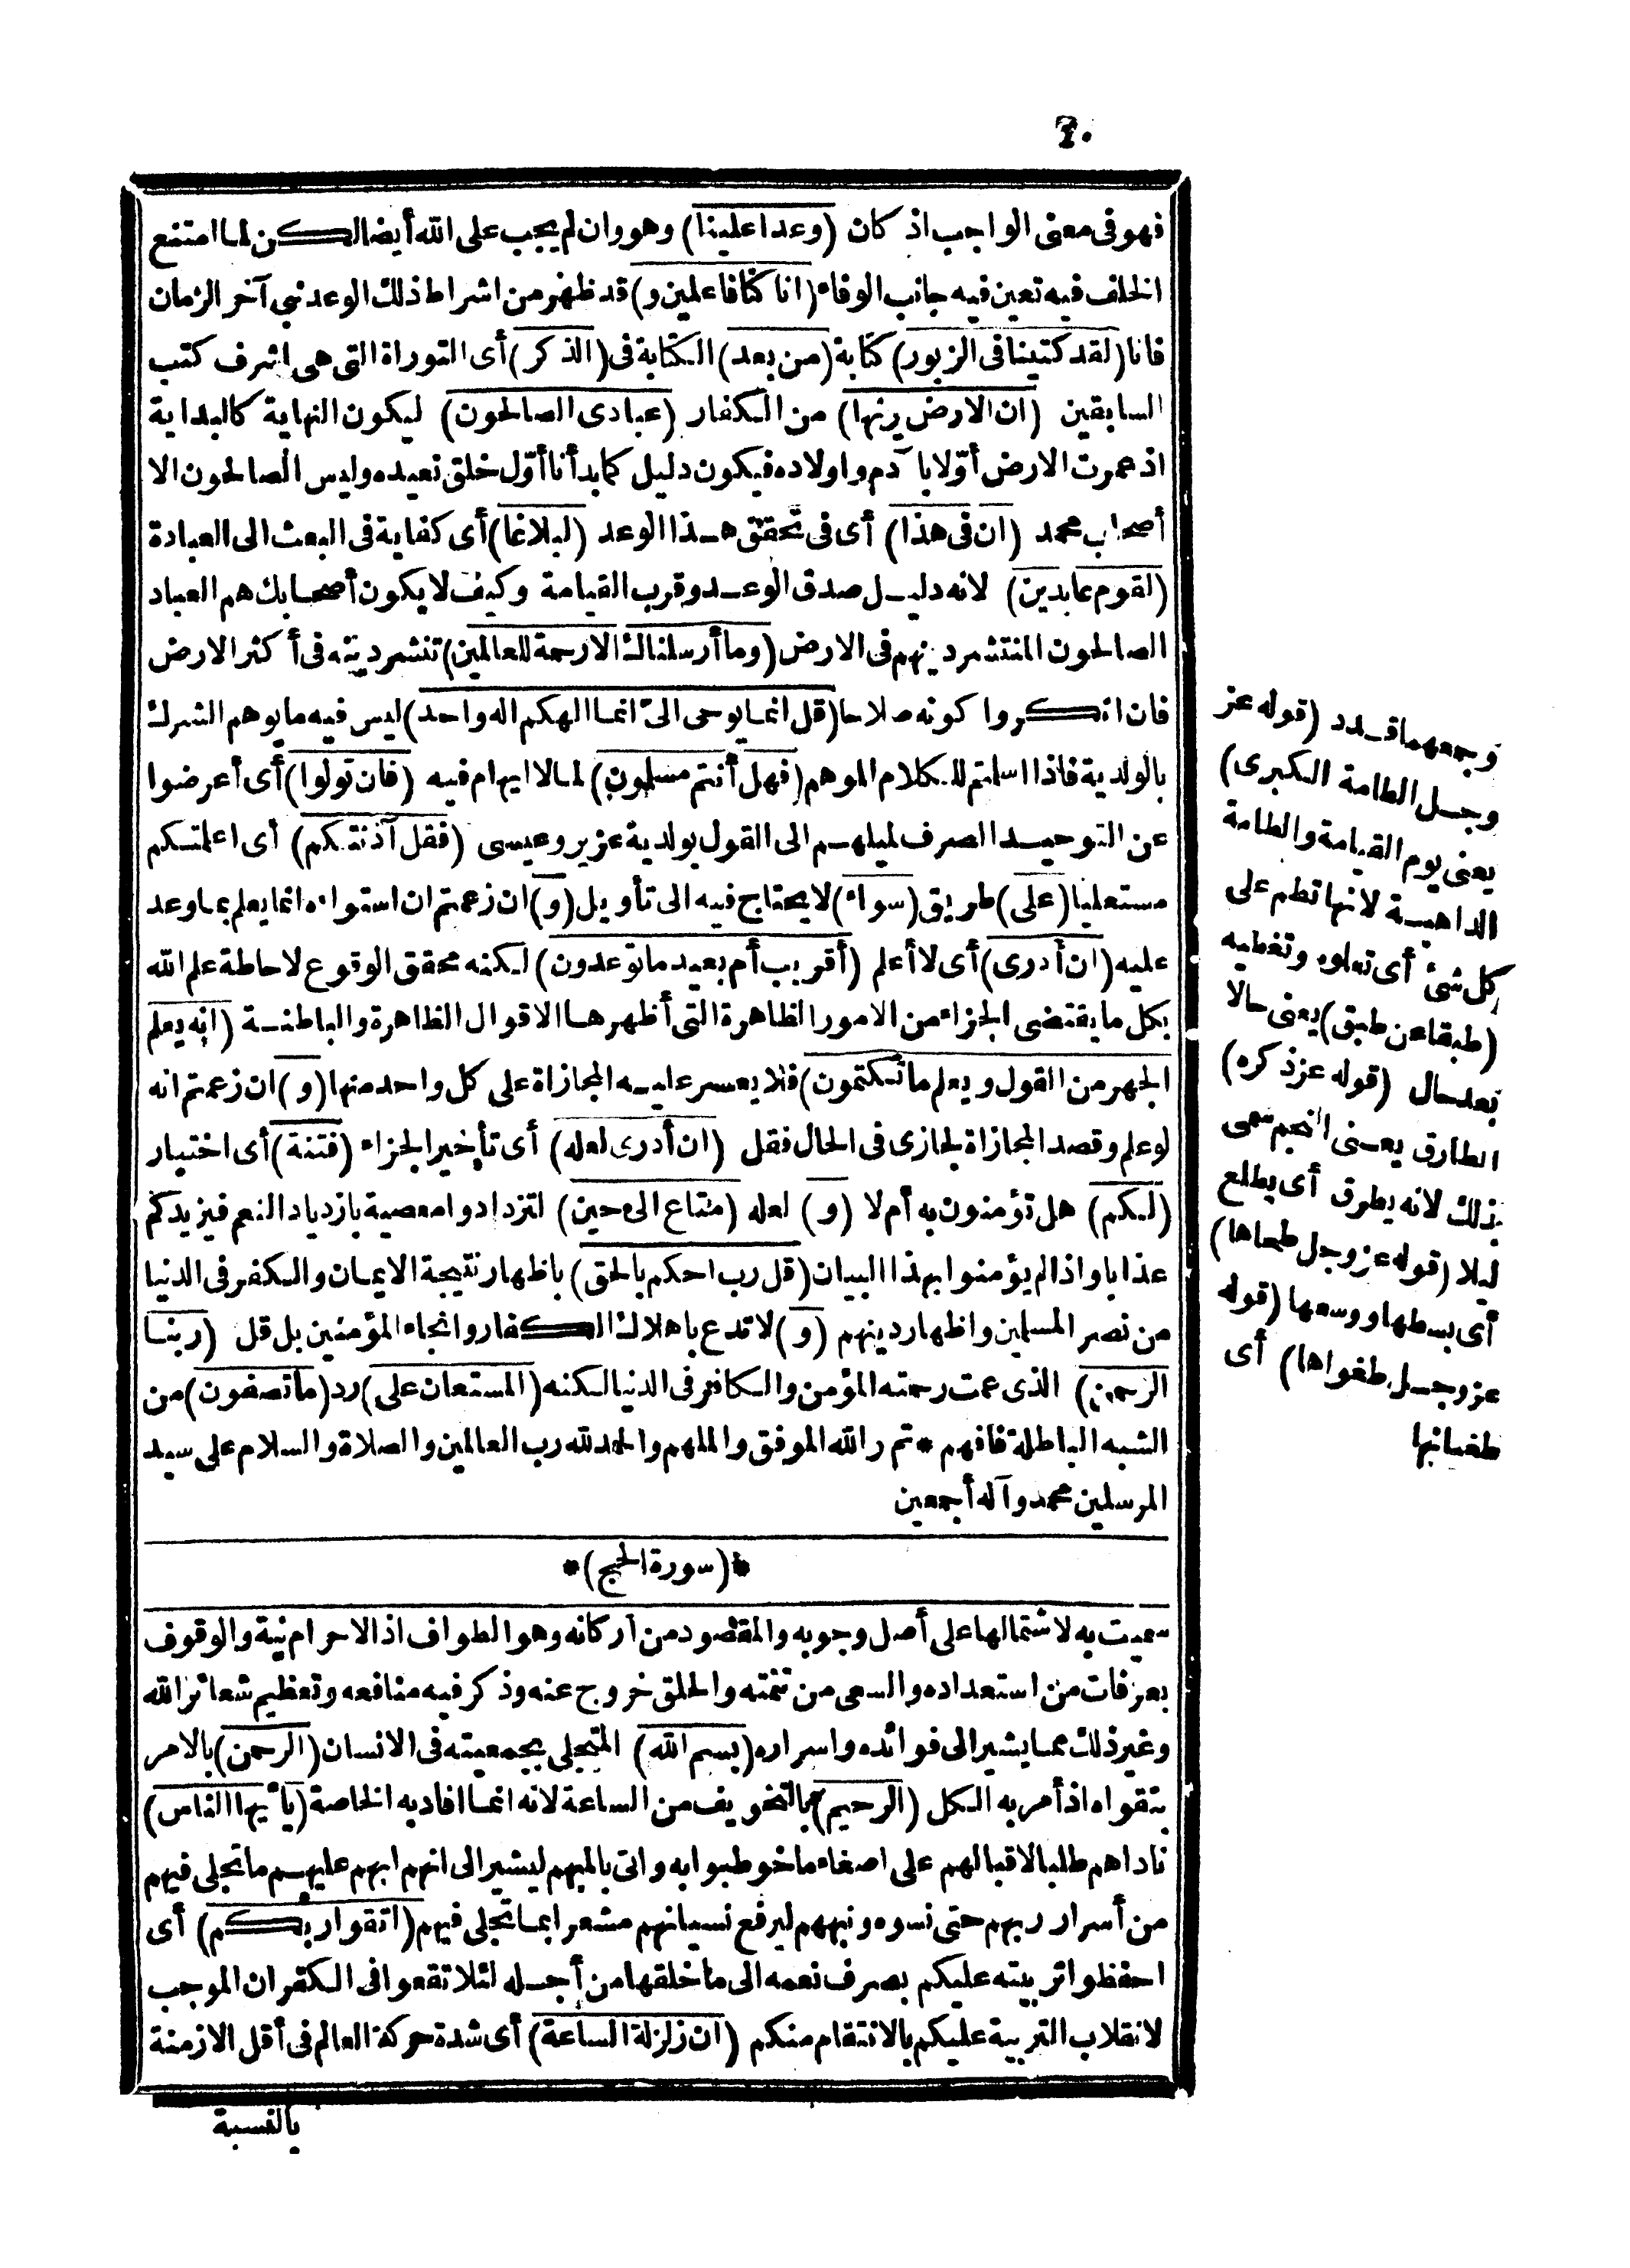 فهو فى معنى الواجب اذ كان (وعدا علينا) وهو وان لم يجب على الله أيضا لكن لما امتنع
الخلف فيه تعين فيه جانب الوفاء (انا كنا فاعلين و) قد ظهر من اشراط ذلك الوعد نبى آخر الزمان
فانا (لقد كتبنا فى الزبور) كتابة (من بعد) الكتابة فى (الذكر) أى التوراة التى هى اشرف كتب
السابقين (ان الارض يرثها) من الكفار (عبادى الصالحون) ليكون النهاية كالبداية
اذ عمرت الارض أوّلا با دم واولاده فيكون دليل كما بدأنا أوّل خلق نعيده وليس الصالحون الا
أصحاب محمد (ان فى هذا) أى فى تحقق هذا الوعد (لبلاغا) أى كفاية فى البعث الى العبادة
(لقوم عابدين) لانه دليل صدق الوعد وقرب القيامة وكيف لا يكون أصحابك هم العباد
الصالحون المنتشر دينهم فى الارض (وما أرسلناك الا رحمة للعالمين) تنشر دينه فى أكثر الارض
فان انكروا كونه صلاحا (قل انما يوحى الىّ انما الهكم اله واحد) ليس فيه ما يوهم الشرك
بالولدية فاذا اسلمتم للكلام الموهم (فهل أنتم مسلمون) لما لا ايهام فيه (فان تولوا) أى أعرضوا
عن التوحيد الصرف لميلهم الى القول بولدية عزير وعيسى (فقل آذنتكم) أى اعلمتكم
مستعليا (على) طريق (سواء) لا يحتاج فيه الى تأويل (و) ان زعمتم ان استواءه انما يعلم بما وعد
عليه (ان أدرى) أى لا أعلم (أقريب أم بعيد ما توعدون) لكنه محقق الوقوع لاحاطة علم الله
بكل ما يقتضى الجزاء من الامور الظاهرة التى أظهرها الاقوال الظاهرة والباطنة (انه يعلم
الجهر من القول ويعلم ما تكتمون) فلا يعسر عليه المجازاة على كل واحد منها (و) ان زعمتم انه
لو علم وقصد المجازاة لجازى فى الحال فقل (ان أدرى لعله) أى تأخير الجزاء (فتنة) أى اختبار
(لكم) هل تؤمنون به أم لا (و) لعله (متاع الى حين) لتزدادوا معصية بازدياد النعم فيزيدكم
عذابا واذا لم يؤمنوا بهذا البيان (قل رب احكم بالحق) باظهار نتيجة الايمان والكفر فى الدنيا
من نصر المسلمين واظهار دينهم (و) لا تدع باهلاك الكفار وانجاء المؤمنين بل قل (ربنا
الرحمن) الذى عمت رحمته المؤمن والكافر فى الدنيا لكنه (المستعان على) رد (ما تصفون) من
الشبه الباطلة فافهم * تم والله الموفق والملهم والحمد لله رب العالمين والصلاة والسلام على سيد
المرسلين محمد وآله أجمعين
*(سورة الحج)*
سميت به لاشتمالها على أصل وجوبه والمقصود من اركانه وهو الطواف اذ الاحرام نية والوقوف
بعرفات من استعداده والسعى من تتمته والحلق خروج عنه وذكر فيه منافعه وتعظيم شعائر الله
وغير ذلك مما يشير الى فوائده واسراره (بسم الله) المتجلى بجمعيته فى الانسان (الرحمن) بالامر
بتقواه اذ أمر به الكل (الرحيم) بالتخويف من الساعة لانه انما افاد به الخاصة (يا أيها الناس)
ناداهم طلبا لاقبالهم على اصغاء ما خوطبوا به واتى بالمبهم ليشير الى انهم ابهم عليهم ما تجلى فيهم
من أسرار ربهم حتى نسوه ونبههم ليرفع نسيانهم مشعرا بما تجلى فيهم (اتقوا ربكم) أى
احفظوا تربيته عليكم بصرف نعمه الى ما خلقها من أجله لئلا تقعوا فى الكفران الموجب
لانقلاب التربية عليكم بالانتقام منكم (ان زلزلة الساعة) أى شدة حركة العالم فى أقل الازمنة
بالنسبة
وجمعهما قدد (قوله عز
وجل الطامة الكبرى)
يعنى يوم القيامة والطامة
الداهية لانها تطم على
كل شئ أى تعلوه وتغطيه
(طبقا عن طبق) يعنى حالا
بعد حال (قوله عز ذكره)
الطارق يعنى النجم سمى
بذلك لانه يطرق أى يطلع
ليلا (قوله عز وجل طحاها)
أى بسطها ووسعها (قوله
عز وجل بطغواها) أى
طغيانها